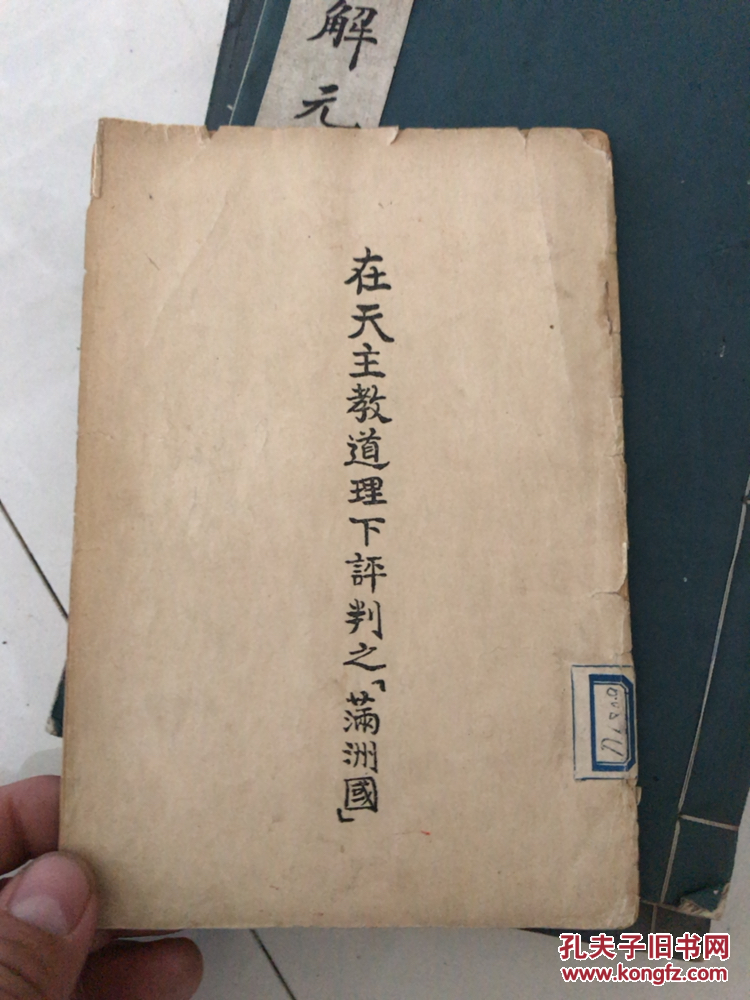 解元
在天主教道理下評判之「滿洲國」
孔夫子旧书网
www.kongfz.com